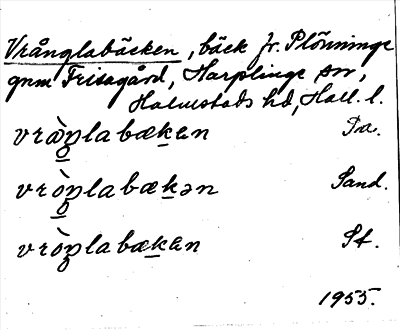 Vrånglabäcken, bäck fr. Plönninge
gnm Frisagård, Harplinge sn,
Halmstads hd, Hall. l.
vrå̀ŋlabæken
vrò̱ŋlabæḵən Sand.
vròŋlabæḵen St.
1955.